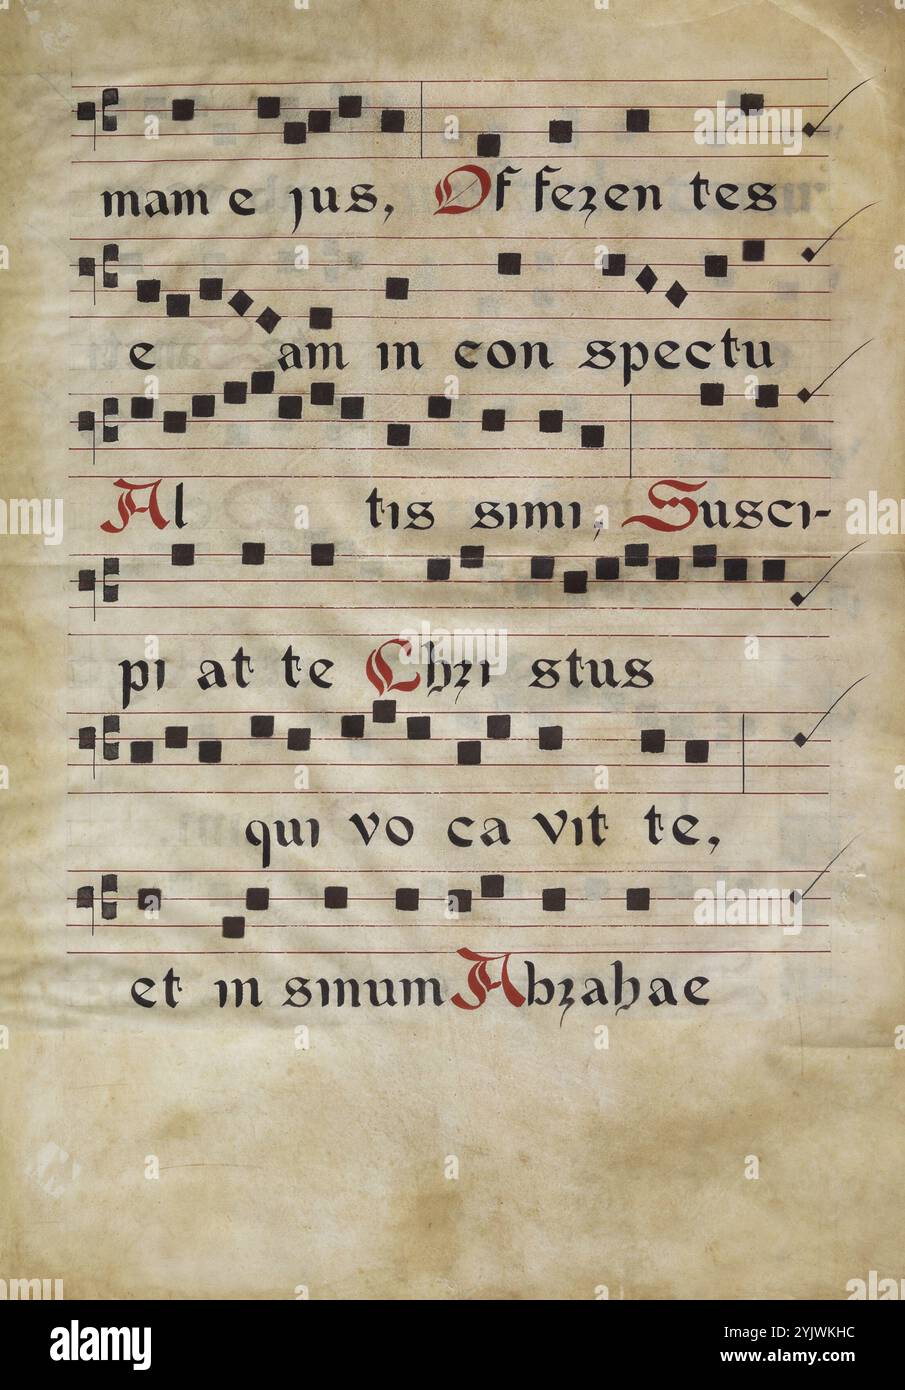 mam e jus, Offeren tes
e am in con spectu
Al tis simi, Susci-
pi at te Chri stus
qui vo ca vit te,
et in sinum Abrahae
alamy
Image ID: 2YJWKHC
www.alamy.com